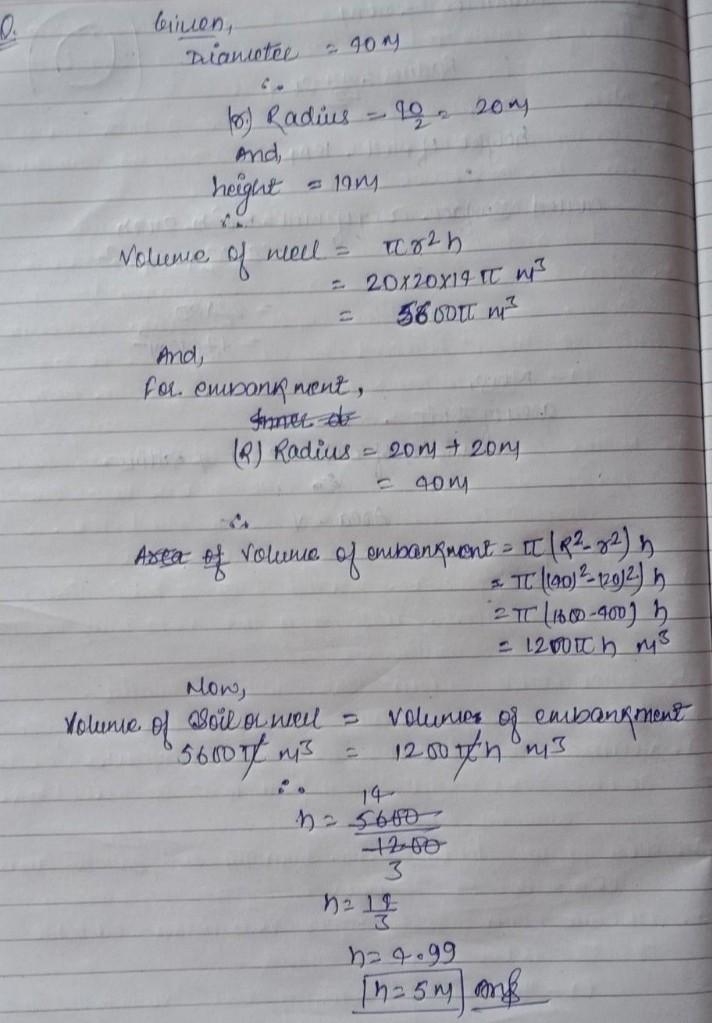 Given,
Diameter = 40 m
∴
(r) Radius = 40/2 = 20 m
And,
height = 14 m
∴
Volume of well = πr²h
= 20×20×14 π m³
= 5600π m³
And,
for embankment,
(R) Radius = 20m + 20m
= 40m
∴
Area of Volume of embankment = π(R²-r²) h
= π((40)²-(20)²) h
= π(1600-400) h
= 1200πh m³
Now,
Volume of Soil or well = Volumes of embankment
5600π m³ = 1200πh m³
∴ 14
h = 5600
1200
3
h = 14/3
h = 4.99
h = 5 m Ans